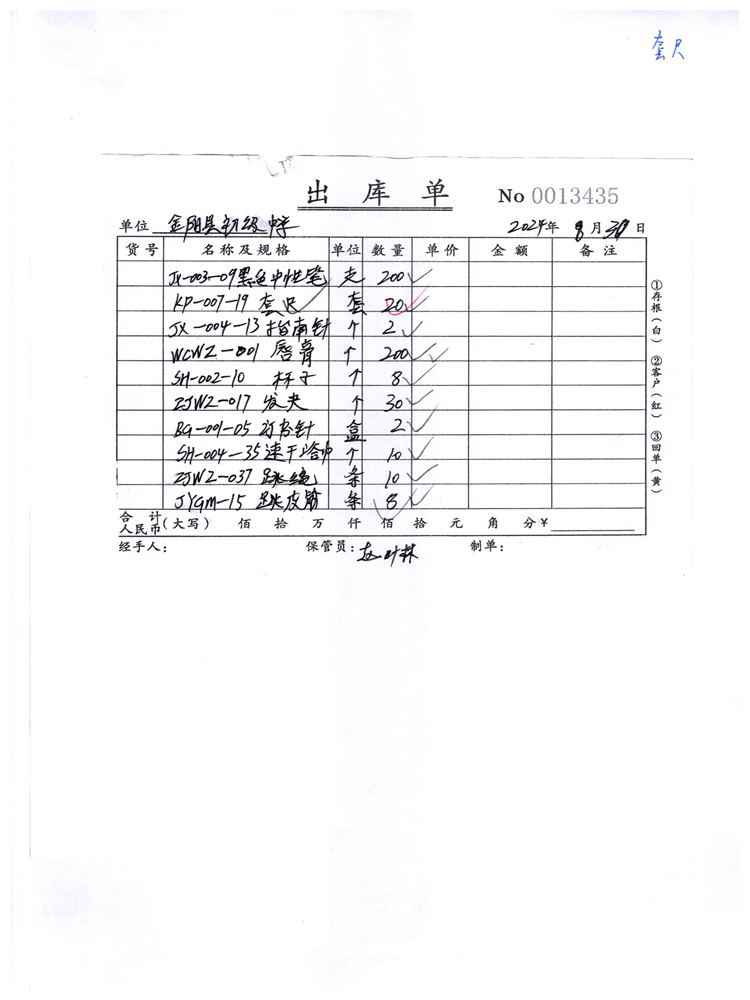 套尺
出 库 单 No 0013435
单位 金阳县初级中学 2024年 8月 30日
货号 名称及规格 单位 数量 单价 金额 备注
JX-003-09黑色中性笔 支 200
KP-007-19 套尺 套 20
JX-004-13 指南针 个 2
WCWZ-001 唇膏 个 200
SH-002-10 杯子 个 8
ZJWZ-017 发夹 个 30
BG-001-05 订书针 盒 2
SH-004-35速干浴巾 个 10
ZJWZ-037 跳绳 条 10
JYGM-15 跳皮筋 条 8
合计人民币(大写) 佰 拾 万 仟 佰 拾 元 角 分¥
经手人: 保管员: 制单:
①存根(白) ②客户(红) ③回单(黄)